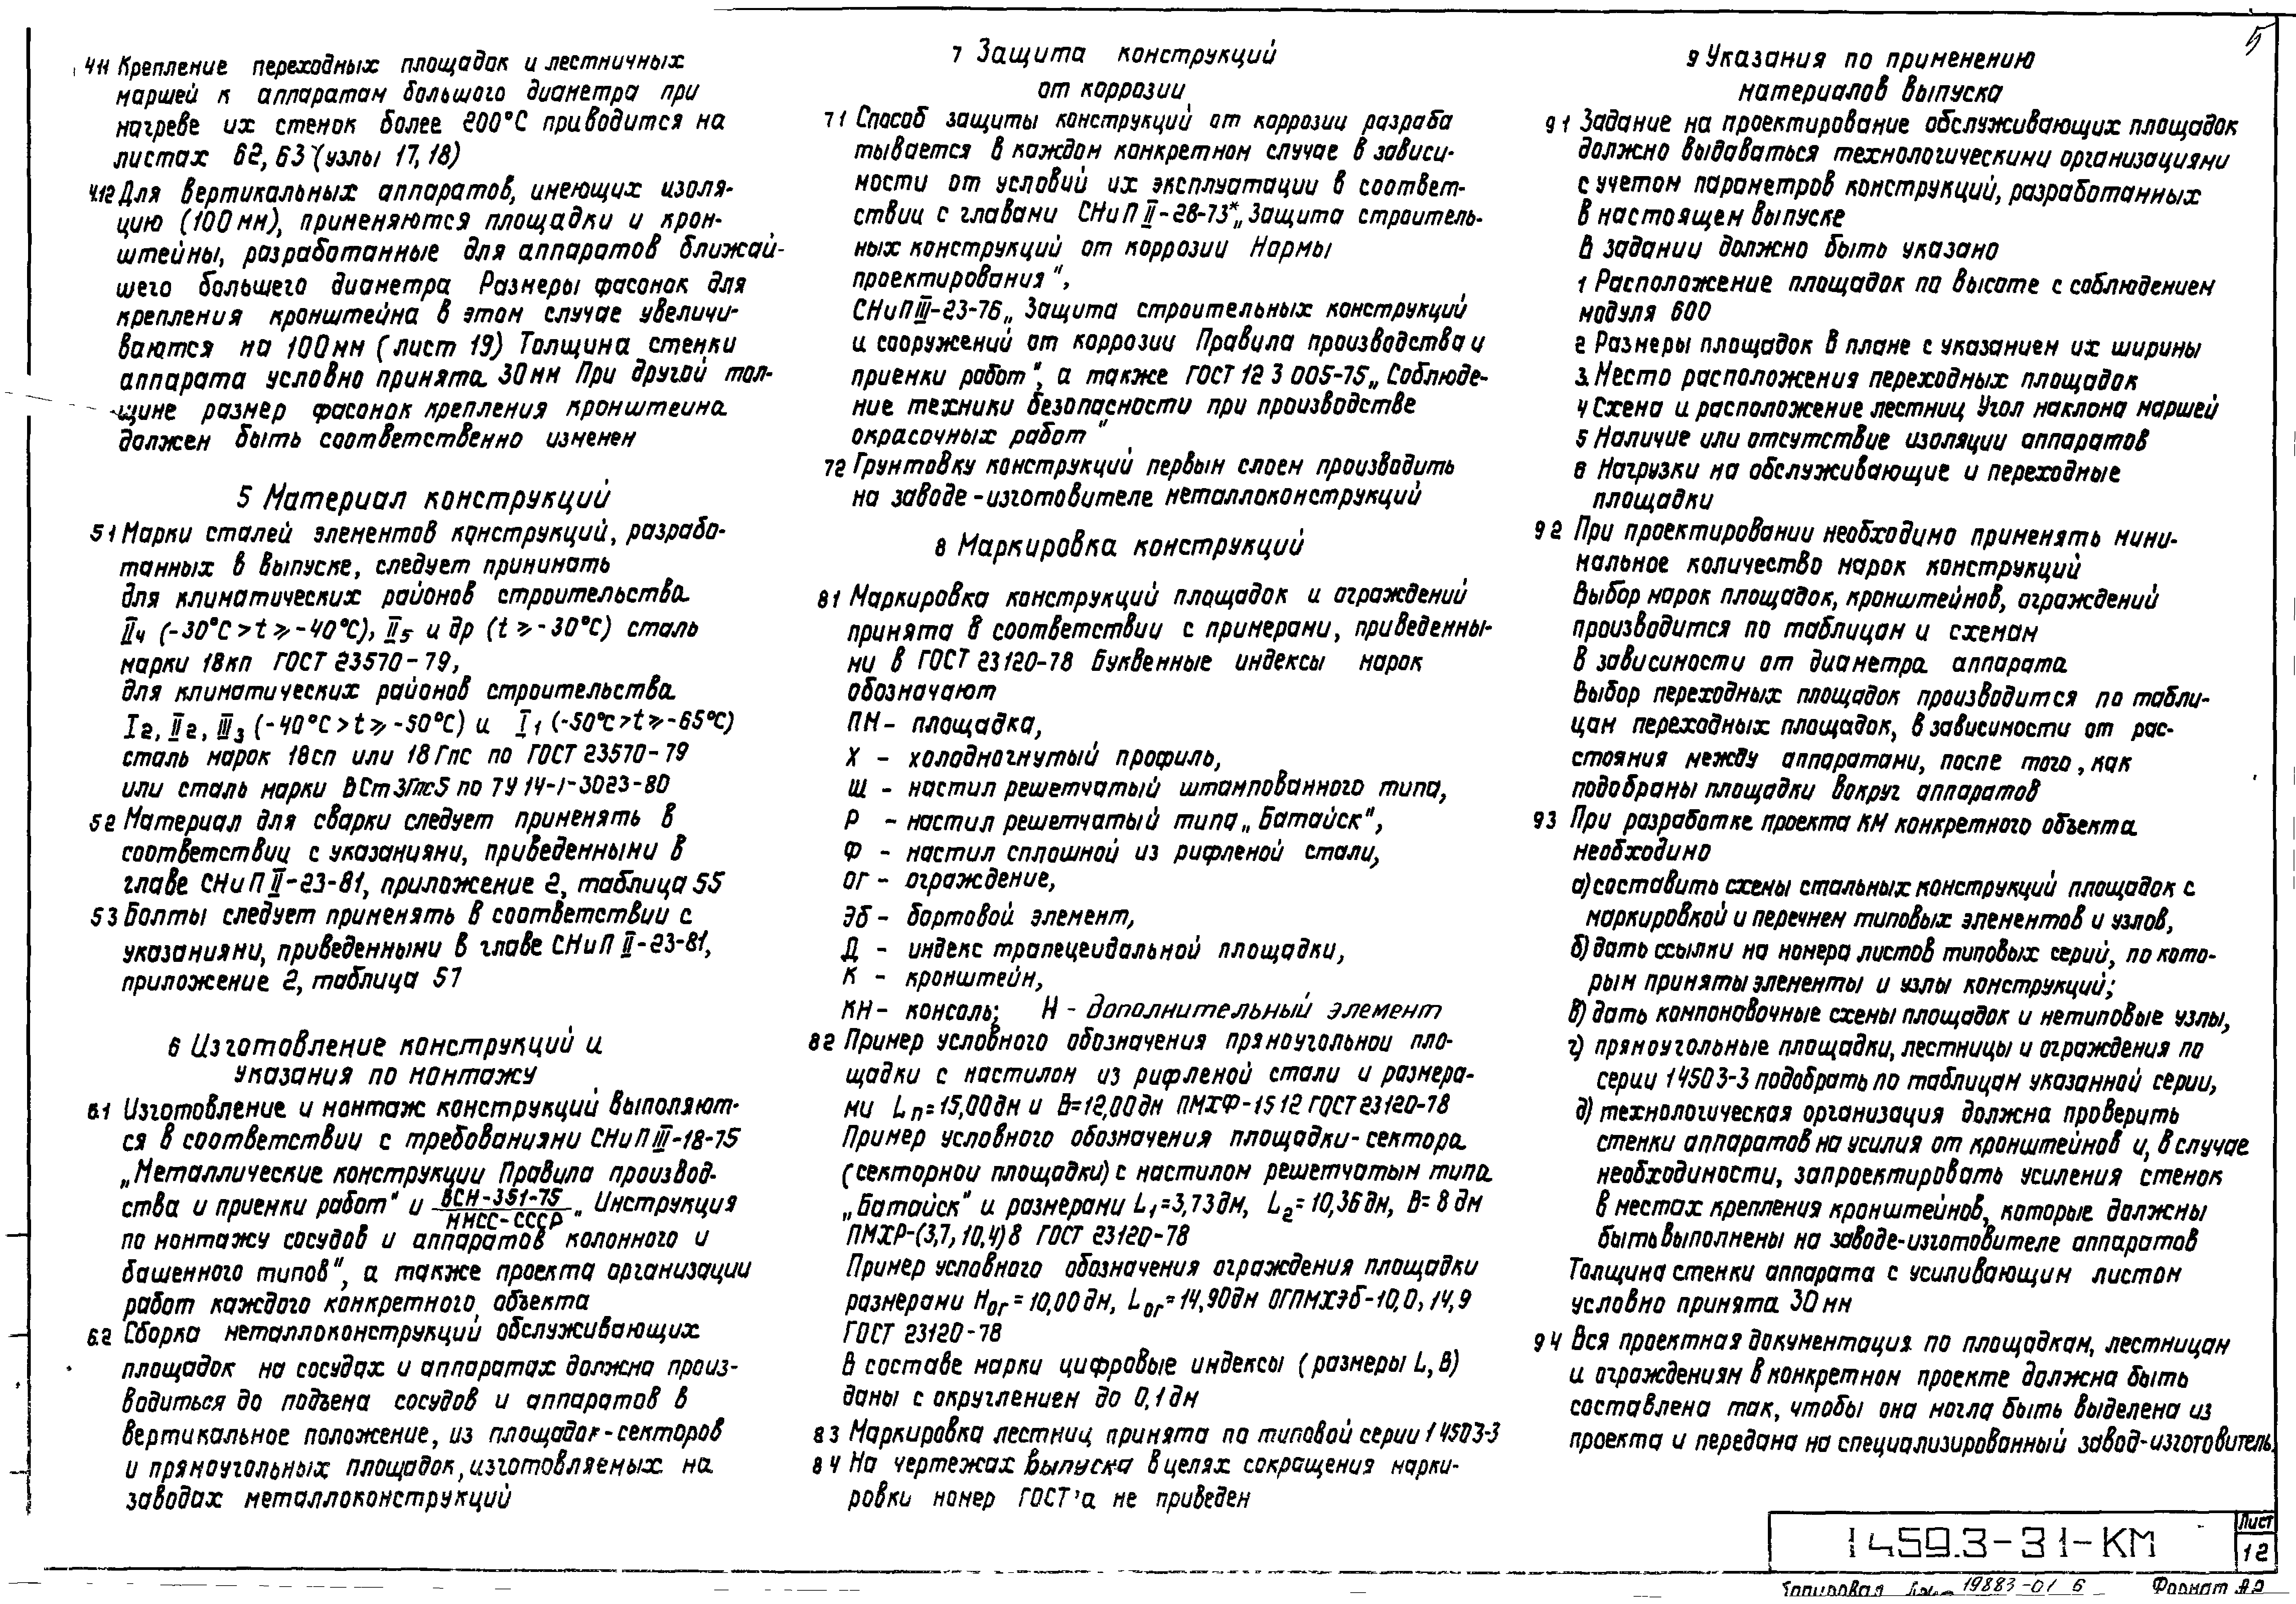 5
4.11 Крепление переходных площадок и лестничных
маршей к аппаратам большого диаметра при
нагреве их стенок более 200°С приводится на
листах 62, 63 (узлы 17, 18)
4.12 Для вертикальных аппаратов, имеющих изоля-
цию (100 мм), применяются площадки и крон-
штейны, разработанные для аппаратов ближай-
шего большего диаметра Размеры фасонок для
крепления кронштейна в этом случае увеличи-
ваются на 100 мм (лист 19) Толщина стенки
аппарата условно принята 30 мм При другой тол-
щине размер фасонок крепления кронштеина
должен быть соответственно изменен
5 Материал конструкций
5 1 Марки сталей элементов конструкций, разрабо-
танных в выпуске, следует принимать
для климатических районов строительства
II4 (-30°С > t ⩾ -40°С), II5 и др (t ⩾ -30°С) сталь
марки 18кп ГОСТ 23570-79,
для климатических районов строительства
I2, II2, III3 (-40°С > t ⩾ -50°С) и I1 (-50°С > t ⩾ -65°С)
сталь марок 18сп или 18Гпс по ГОСТ 23570-79
или сталь марки ВСт3Гпс5 по ТУ 14-1-3023-80
5 2 Материал для сварки следует применять в
соответствии с указаниями, приведенными в
главе СНиП II-23-81, приложение 2, таблица 55
5 3 Болты следует применять в соответствии с
указаниями, приведенными в главе СНиП II-23-81,
приложение 2, таблица 57
6 Изготовление конструкций и
указания по монтажу
6.1 Изготовление и монтаж конструкций выполяют-
ся в соответствии с требованиями СНиП III-18-75
„Металлические конструкции Правила производ-
ства и приемки работ" и ВСН-351-75 / ММСС-СССР „Инструкция
по монтажу сосудов и аппаратов колонного и
башенного типов", а также проекта организации
работ каждого конкретного объекта
6.2 Сборка металлоконструкций обслуживающих
площадок на сосудах и аппаратах должна произ-
водиться до подъема сосудов и аппаратов в
вертикальное положение, из площадок-секторов
и прямоугольных площадок, изготовляемых на
заводах металлоконструкций
7 Защита конструкций
от коррозии
7 1 Способ защиты конструкций от коррозии разраба
тывается в каждом конкретном случае в зависи-
мости от условий их эксплуатации в соответ-
ствии с главами СНиП II-28-73* „Защита строитель-
ных конструкций от коррозии Нормы
проектирования",
СНиП III-23-76 „Защита строительных конструкций
и сооружений от коррозии Правила производства и
приемки работ", а также ГОСТ 12 3 005-75 „Соблюде-
ние техники безопасности при производстве
окрасочных работ"
7 2 Грунтовку конструкций первым слоем производить
на заводе-изготовителе металлоконструкций
8 Маркировка конструкций
8 1 Маркировка конструкций площадок и ограждений
принята в соответствии с примерами, приведенны-
ми в ГОСТ 23120-78 Буквенные индексы марок
обозначают
ПМ - площадка,
Х - холодногнутый профиль,
Ш - настил решетчатый штампованного типа,
Р - настил решетчатый типа „Батайск",
Ф - настил сплошной из рифленой стали,
ОГ - ограждение,
ЭБ - бортовой элемент,
Д - индекс трапецеидальной площадки,
К - кронштейн,
КН - консоль; Н - дополнительный элемент
8 2 Пример условного обозначения прямоугольнои пло-
щадки с настилом из рифленой стали и размера-
ми Lп=15,00дм и В=12,00дм ПМХФ-15 12 ГОСТ 23120-78
Пример условного обозначения площадки-сектора
(секторнои площадки) с настилом решетчатым типа
„Батайск" и размерами L1=3,73дм, L2=10,36дм, В=8 дм
ПМХР-(3,7, 10,4) 8 ГОСТ 23120-78
Пример условного обозначения ограждения площадки
размерами Hог=10,00дм, Lог=14,90дм ОГПМХЭБ-10,0, 14,9
ГОСТ 23120-78
В составе марки цифровые индексы (размеры L, В)
даны с округлением до 0,1 дм
8 3 Маркировка лестниц принята по типовой серии 1 450 3-3
8 4 На чертежах выпуска в целях сокращения марки-
ровки номер ГОСТ'а не приведен
9 Указания по применению
материалов выпуска
9 1 Задание на проектирование обслуживающих площадок
должно выдаваться технологическими организациями
с учетом параметров конструкций, разработанных
в настоящем выпуске
В задании должно быть указано
1 Расположение площадок по высоте с соблюдением
модуля 600
2 Размеры площадок в плане с указанием их ширины
3. Место расположения переходных площадок
4 Схема и расположение лестниц Угол наклона маршей
5 Наличие или отсутствие изоляции аппаратов
6 Нагрузки на обслуживающие и переходные
площадки
9 2 При проектировании необходимо применять мини-
мальное количество марок конструкций
Выбор марок площадок, кронштейнов, ограждений
производится по таблицам и схемам
в зависимости от диаметра аппарата
Выбор переходных площадок производится по табли-
цам переходных площадок, в зависимости от рас-
стояния между аппаратами, после того, как
подобраны площадки вокруг аппаратов
9 3 При разработке проекта КМ конкретного объекта
необходимо
а) составить схемы стальных конструкций площадок с
маркировкой и перечнем типовых элементов и узлов,
б) дать ссылки на номера листов типовых серий, по кото-
рым приняты элементы и узлы конструкций;
в) дать компоновочные схемы площадок и нетиповые узлы,
г) прямоугольные площадки, лестницы и ограждения по
серии 1 450 3-3 подобрать по таблицам указанной серии,
д) технологическая организация должна проверить
стенки аппаратов на усилия от кронштейнов и, в случае
необходимости, запроектировать усиления стенок
в местах крепления кронштейнов, которые должны
быть выполнены на заводе-изготовителе аппаратов
Толщина стенки аппарата с усиливающим листом
условно принята 30 мм
9 4 Вся проектная документация по площадкам, лестницам
и ограждениям в конкретном проекте должна быть
составлена так, чтобы она могла быть выделена из
проекта и передана на специализированный завод-изготовитель
1 459.3-3 1-КМ
Лист
12
Копировал 19883-01 6 Формат А2